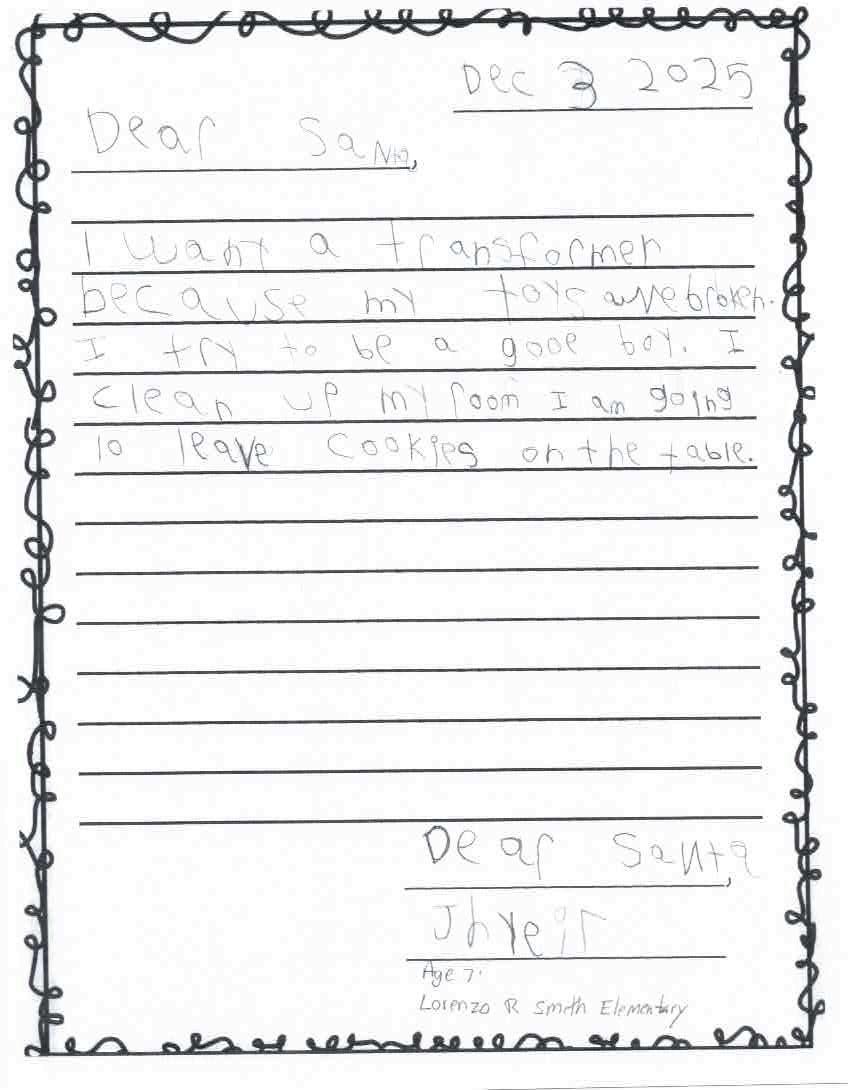 Dec 3 2025
Dear Santa,
I want a transformer
because my toys are broken.
I try to be a gooe boy. I
clean up my room I am going
to leave cookies on the table.
Dear Santa,
Jhyeir
Age 7.
Lorenzo R Smith Elementary